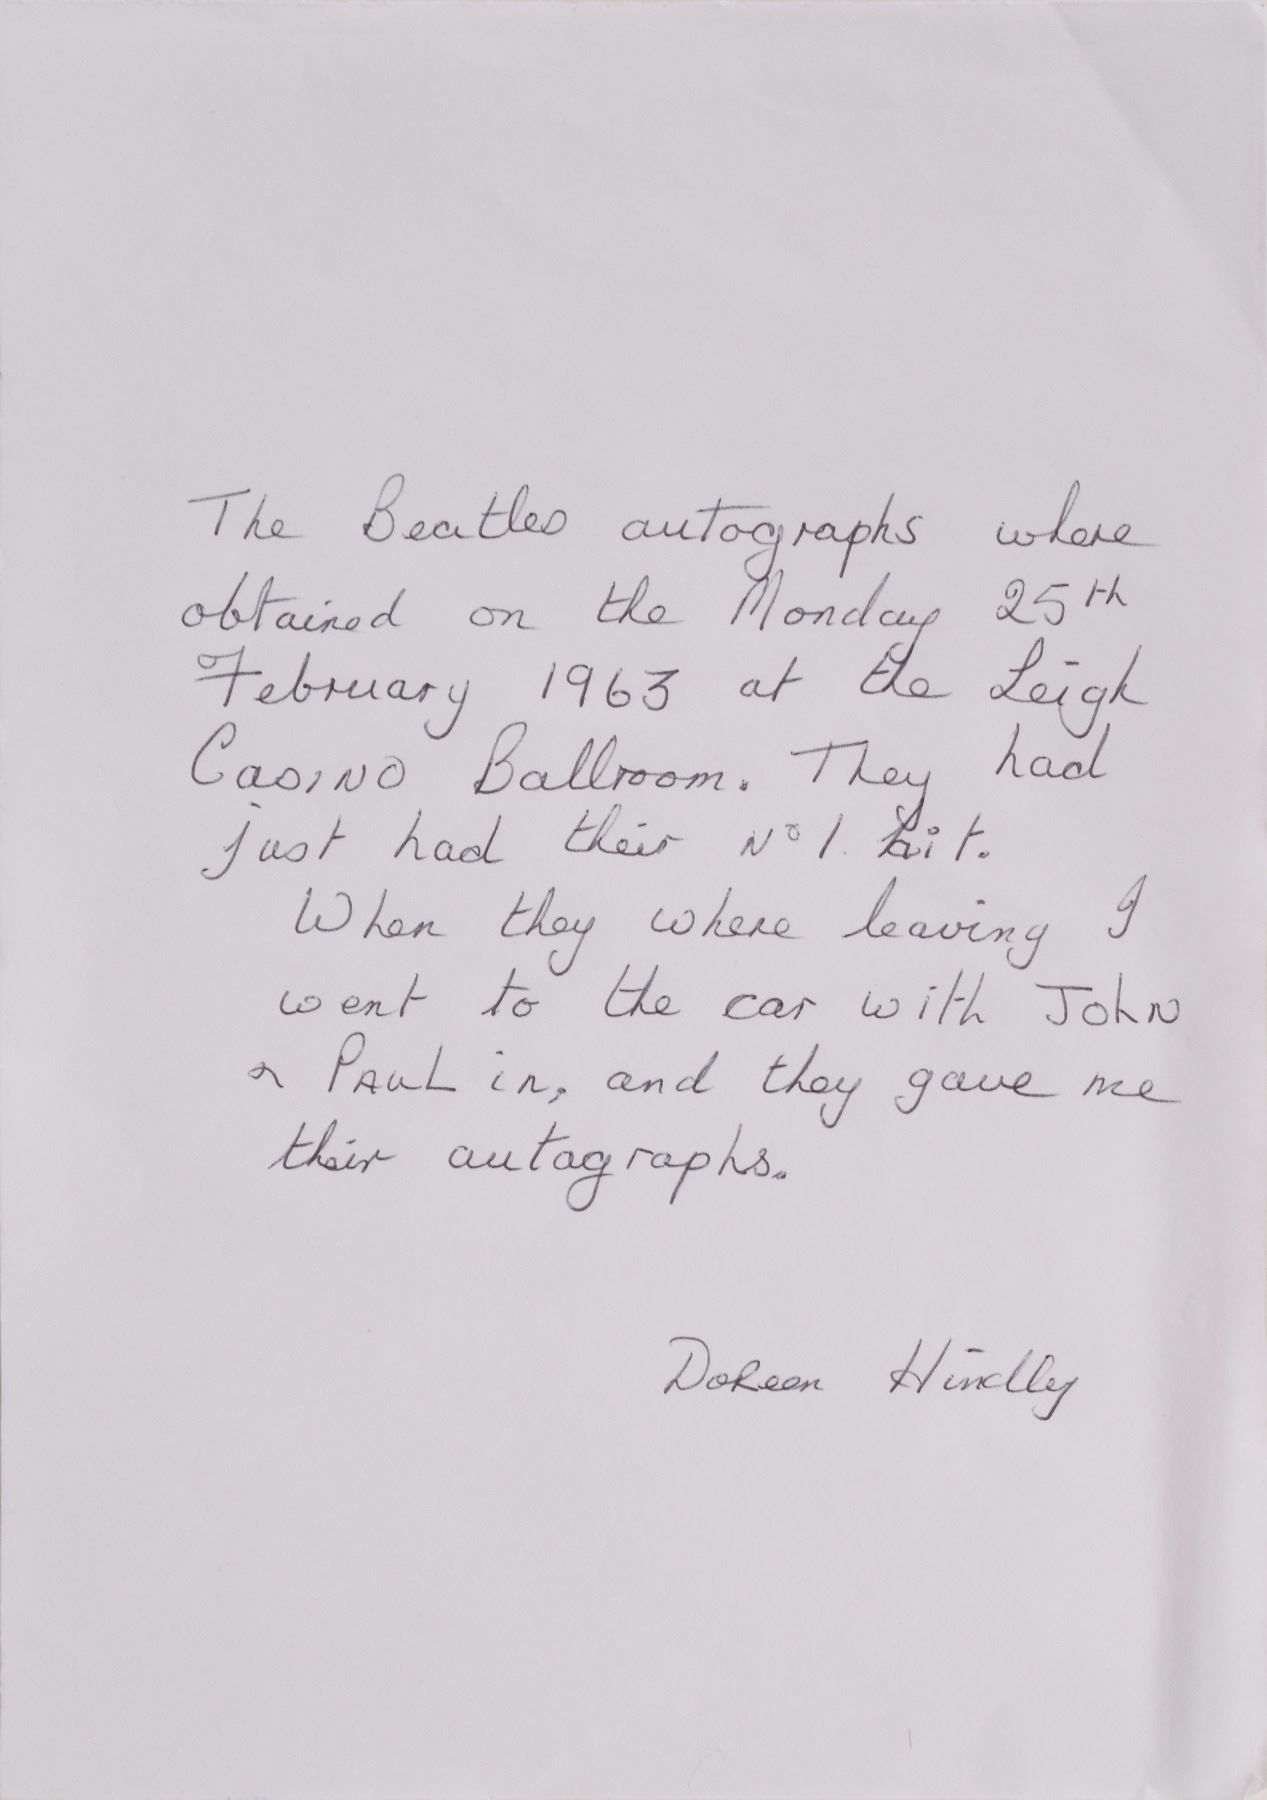 The Beatles autographs where
obtained on the Monday 25th
February 1963 at the Leigh
Casino Ballroom. They had
just had their No 1 hit.
When they where leaving I
went to the car with John
& Paul in, and they gave me
their autographs.
Doreen Hindley